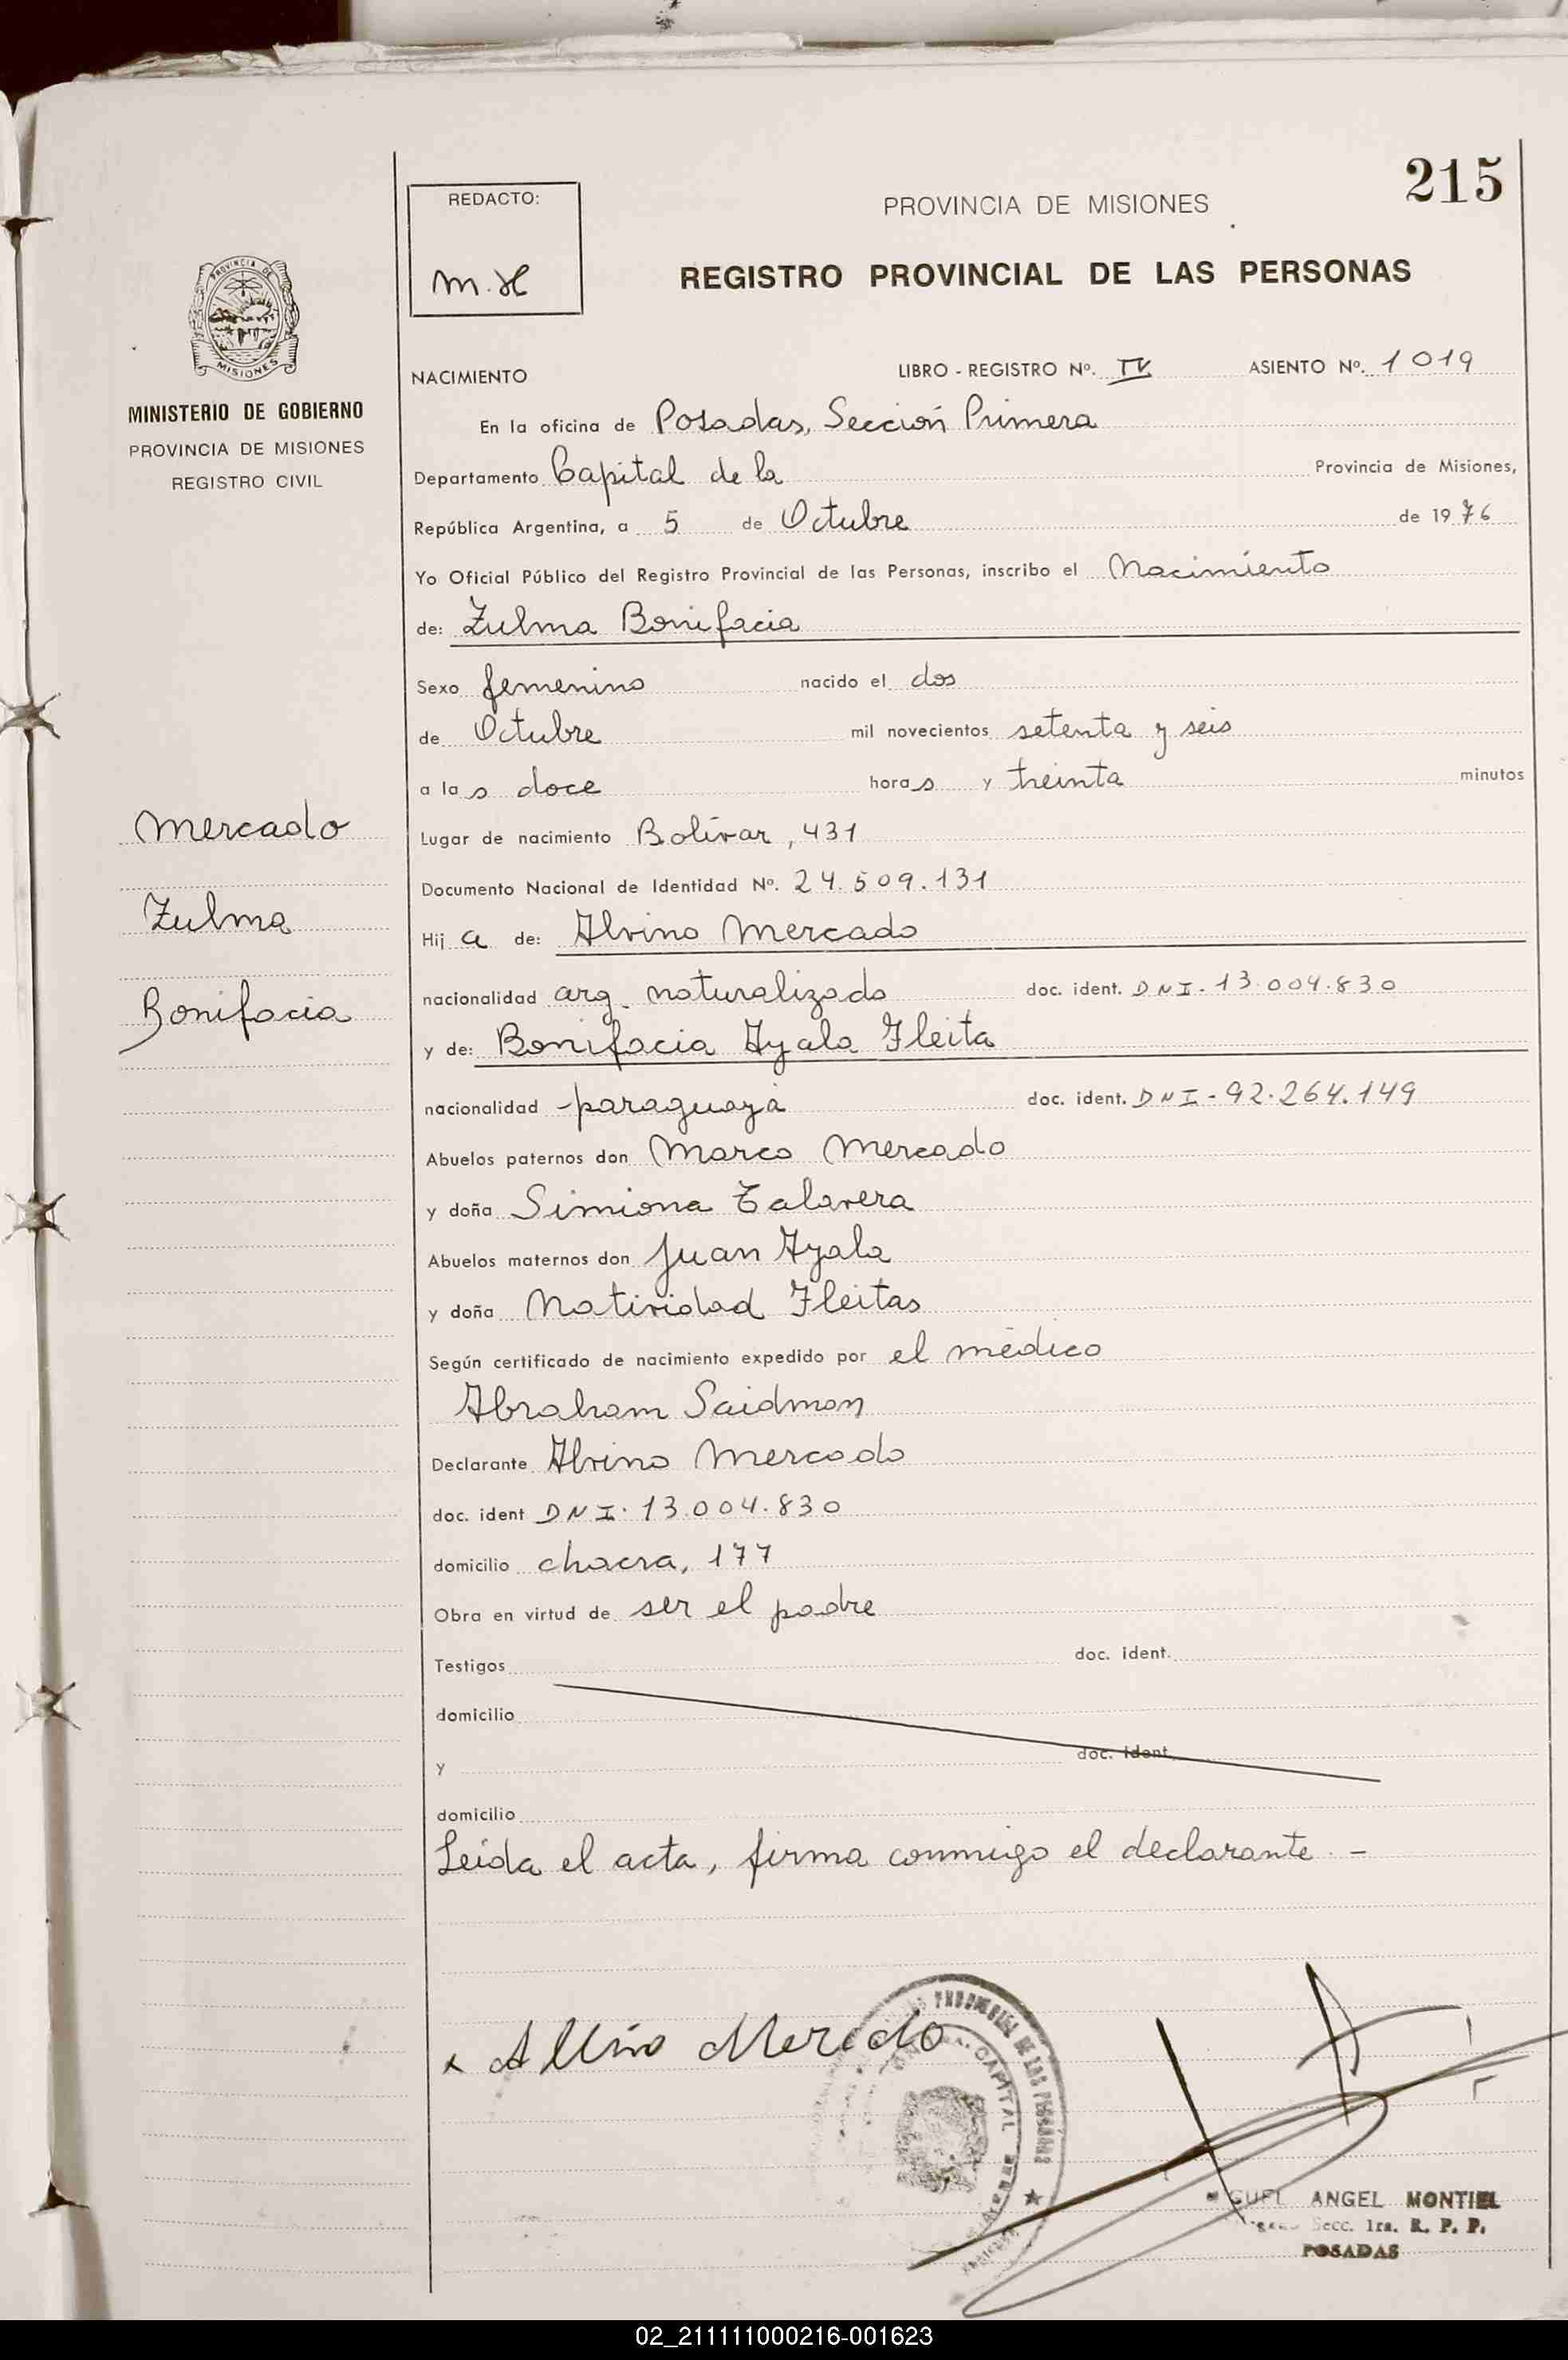 215
REDACTO:
M.H
PROVINCIA DE MISIONES
REGISTRO PROVINCIAL DE LAS PERSONAS
PROVINCIA DE
MISIONES
MINISTERIO DE GOBIERNO
PROVINCIA DE MISIONES
REGISTRO CIVIL
NACIMIENTO LIBRO - REGISTRO Nº. IV ASIENTO Nº. 1019
En la oficina de Posadas, Sección Primera
Departamento Capital de la Provincia de Misiones,
República Argentina, a 5 de Octubre de 1976
Yo Oficial Público del Registro Provincial de las Personas, inscribo el Nacimiento
de: Zulma Bonifacia
Sexo femenino nacido el dos
de Octubre mil novecientos setenta y seis
a las doce horas y treinta minutos
Mercado
Zulma
Bonifacia
Lugar de nacimiento Bolívar, 431
Documento Nacional de Identidad Nº. 24.509.131
Hija de: Alvino Mercado
nacionalidad arg. naturalizado doc. ident. DNI-13.004.830
y de: Bonifacia Ayala Fleita
nacionalidad paraguaya doc. ident. DNI-92.264.149
Abuelos paternos don Marco Mercado
y doña Simiona Talavera
Abuelos maternos don Juan Ayala
y doña Natividad Fleitas
Según certificado de nacimiento expedido por el médico
Abraham Saidman
Declarante Alvino Mercado
doc. ident DNI. 13.004.830
domicilio chacra, 177
Obra en virtud de ser el padre
Testigos doc. ident.
domicilio
y doc. ident
domicilio
Leída el acta, firma conmigo el declarante. -
x Alvino Mercado
CAPITAL
ANGEL MONTIEL
Secc. 1ra. R. P. P.
POSADAS
02_211111000216-001623